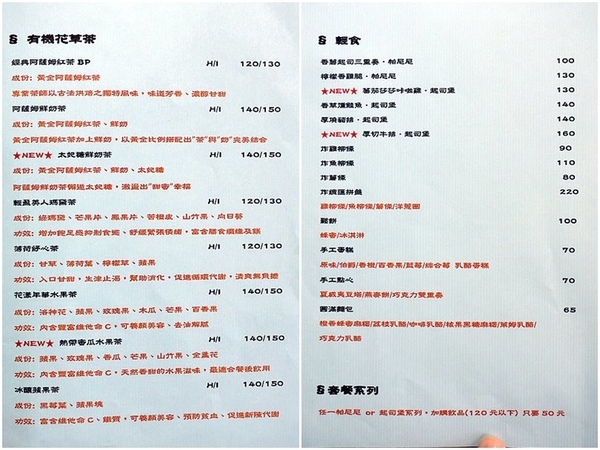 § 有機花草茶
經典阿薩姆紅茶 BP H/I 120/130
成份: 黃金阿薩姆紅茶
專業茶師以古法烘焙之獨特風味，味道芳香、濃醇甘甜
阿薩姆鮮奶茶 H/I 140/150
成份: 黃金阿薩姆紅茶、鮮奶
黃金阿薩姆紅茶加上鮮奶，以黃金比例搭配出"茶"與"奶"完美結合
★NEW★ 太妃糖鮮奶茶 H/I 140/150
成份: 黃金阿薩姆紅茶、鮮奶、太妃糖
阿薩姆鮮奶茶邂逅太妃糖，激盪出"甜蜜"幸福
輕盈美人瑪黛茶 H/I 120/130
成份: 綠瑪黛、芒果片、鳳果片、苦橙皮、山竹果、向日葵
功效: 增加飽足感抑制食慾、舒緩緊張情緒，富含膳食纖維及鎂
薄荷紓心茶 H/I 120/130
成份: 甘草、薄荷葉、檸檬草、蘋果
功效: 入口甘甜，生津止渴，幫助消化，促進循環代謝，清爽無負擔
花漾年華水果茶 H/I 140/150
成份: 洛神花、蘋果、玫瑰果、木瓜、芒果、百香果
功效: 內含豐富維他命C，可養顏美容、去油解膩
★NEW★ 熱帶蜜瓜水果茶 H/I 140/150
成份: 蘋果、玫瑰果、香瓜、芒果、山竹果、金盞花
功效: 內含豐富維他命C，天然香甜的水果滋味，最適合餐後飲用
冰釀蘋果茶 H/I 140/150
成份: 黑莓葉、蘋果塊
功效: 富含維他命C、鐵質，可養顏美容、預防貧血、促進新陳代謝
§ 輕食
香蔥起司三重奏．帕尼尼 100
檸檬香雞腿．帕尼尼 130
★NEW★ 蕃茄莎莎咔啦雞．起司堡 130
香草燻鮭魚．起司堡 140
厚燒豬排．起司堡 140
★NEW★ 厚切牛排．起司堡 160
炸雞柳條 90
炸魚柳條 110
炸薯條 80
炸物匯拼盤 220
雞柳條/魚柳條/薯條/洋蔥圈
鬆餅 100
蜂蜜/冰淇淋
手工蛋糕 70
原味/伯爵/香橙/百香果/藍莓/綜合莓 乳酪蛋糕
手工點心 70
夏威夷豆塔/燕麥餅/巧克力雙重奏
圓滿麵包 65
橙香蜂蜜麻糬/荔枝乳酪/咖啡乳酪/核果黑糖麻糬/萊姆乳酪/
巧克力乳酪
§ 套餐系列
任一帕尼尼 or 起司堡系列，加購飲品(120元以下) 只要 50 元